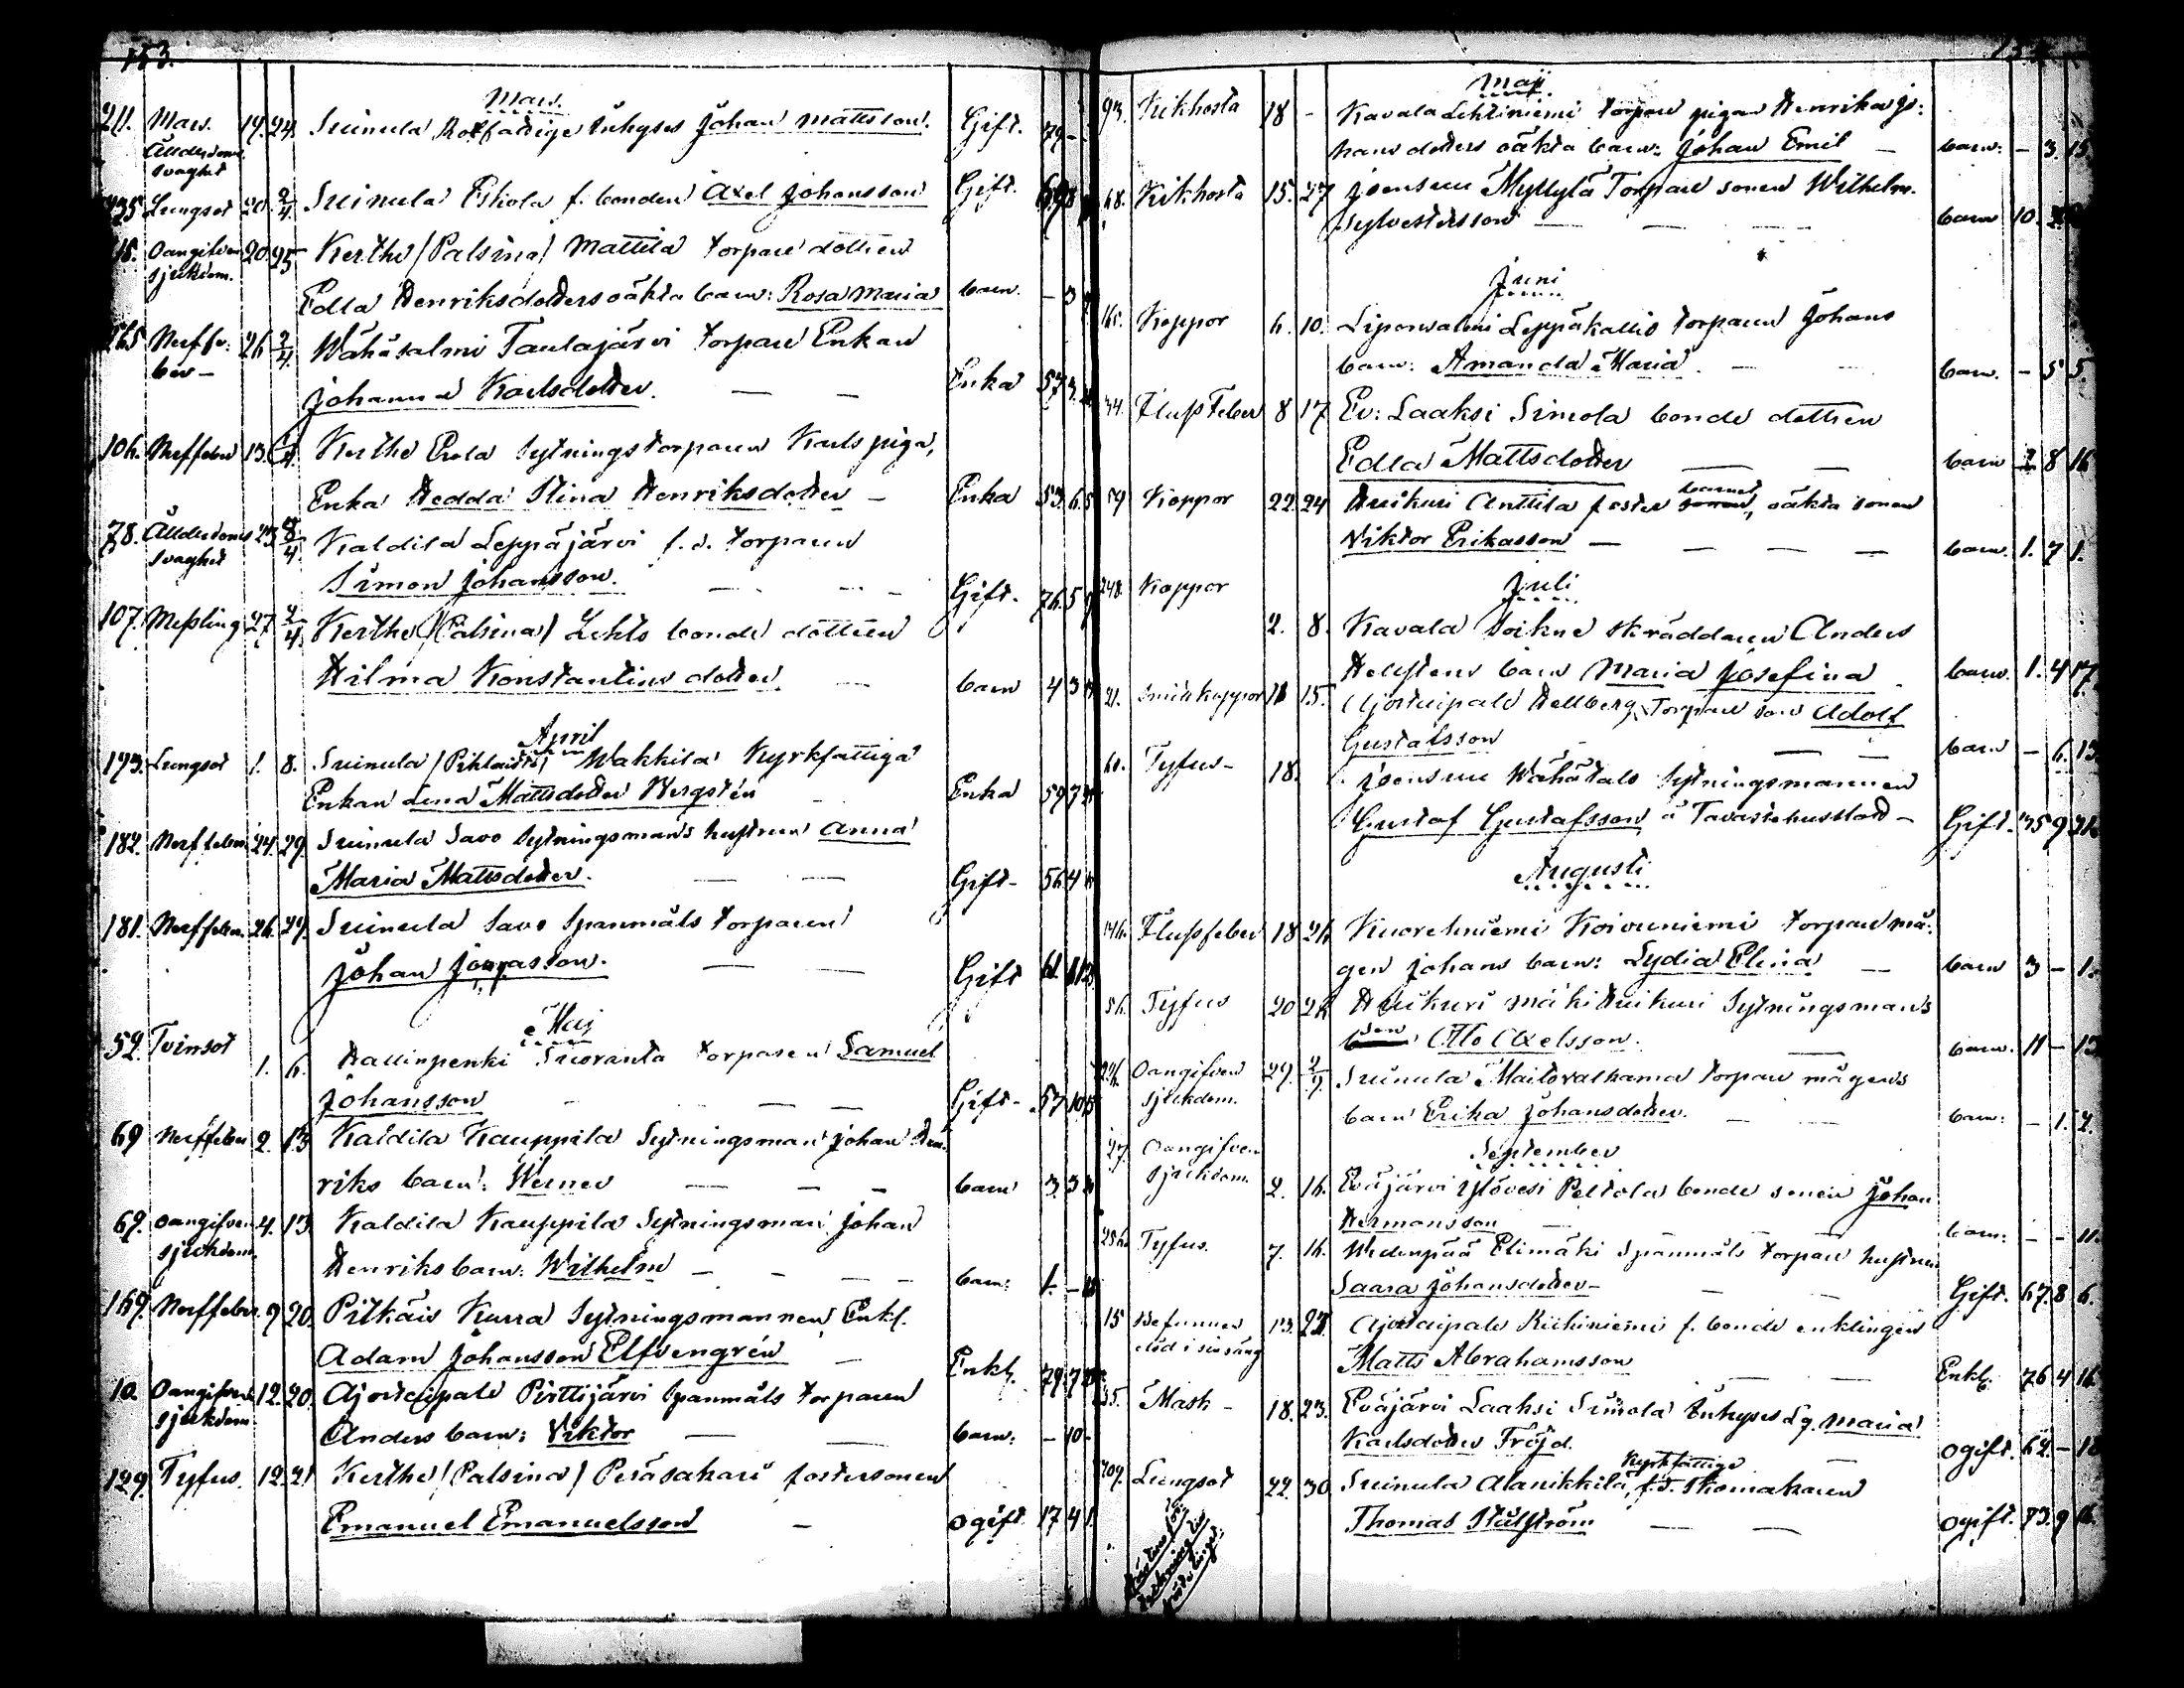 153.
Mars.
211. Mars. 19. 24. Suinula Rotfattige Inhyses Johan Mattsson. Gift. 79 -
Ålderdoms
svaghet
235 Lungsot 20. 2/4 Suinula Eskola f. bonden Axel Johansson Gift. 69 8
Oangifven 20. 25 Kerthe (Palsina) Mattila torpare dottren
sjukdom.
Edla Henriksdotters oäkta barn: Rosa Maria barn. - 3
265 Nerffe- 26 2/4 Wähäsalmi Taulajärvi torpare Enkan
ber -
Johanna Karlsdotter. — — Enka 57 3
106. Nerffeber 13. Kerthe Erola Sytningstorparen Karls piga,
Enka Hedda Stina Henriksdotter - Enka 53. 6. 5
78. Ålderdoms 23 8/4 Kaldila Leppäjärvi f. d. torparen
svaghet
Simon Johansson. — Gift. 76. 5 9
107. Messling 27 2/4 Kerthe (Palsina) Lehto bonde dottren
Hilma Konstantins dotter. — barn 4 3
April
173. Lungsot 1. 8. Suinula (Pihlaisto) Wahkila Kyrkfattiga
Enkan Lena Mattsdotter Bergstén Enka 59 7
182. Nerffeber 24. 29. Suinula Savo Sytningsmans hustrun Anna
Maria Mattsdotter. — — Gift - 56 4
181. Nerffeber. 26. 29. Suinula Savo Spanmåls torparen
Johan Jonasson. — — Gift 61. 11
Maj
52. Tvinsot 1. 6. Hallinpenki Suoranta torparen Samuel
Johansson — — Gift - 57 10
69 Nerffeber 2. 13 Kaldila Kauppila Sytningsman Johan Hen-
riks barn: Werner — — - barn 3. 3
69. Oangifven 4. 13. Kaldila Kauppila Sytningsman Johan
sjukdom.
Henriks barn: Wilhelm — - — barn: 1. -
169. Nerffeber. 9 20. Pitkäis Kurra Sytningsmannen Enkl.
Adam Johansson Elfvengrén — Enkl. 79. 7
10. Oangifven 12. 20. Ajostaipale Pirttijärvi Spanmåls torparen
sjukdom
Anders barn: Viktor — — barn: - 10 -
129. Tyfus. 12. 21 Kerthe (Palsina) Peräsakari fostersonen
Emanuel Emanuelsson - ogift. 17 4 1.
Maji
93. Kikhosta 18 - Kavala Lehtiniemi torpare pigan Henrika Jo-
hans dotters oäkta barn: Johan Emil — barn: - 3. 15.
68. Kikhosta 15. 27 Joensuu Myllylä Torpare sonen Wilhelm
Sylvestersson — — — barn 10.
Juni
Koppor 6. 10. Liponsalmi Leppäkallio torparen Johans
barn: Amanda Maria. - barn. - 5 5.
34. Flussfeber 8 17 Ev: Laaksi Simola bonde dottren
Edla Mattsdotter — — barn 2 8 16
59 Koppor 22 24 Huikuri Anttila foster barnet, oäkta sonen
Viktor Erikasson — — — — barn. 1. 7 1.
Juli
248. Koppor 2. 8. Kavala Soikne skräddaren Anders
Hellstens barn Maria Josefina barn. 1. 4 17.
21. Småkoppor 11 15. Ajostaipale Hellberg Torpare son Adolf
Gustafsson - — — barn - 6. 13
60. Tyfus - 18. Joensuu Wähätalo Sytningsmannen
Gustaf Gustafsson å Tavastehus stad - Gift. 35 9
Augusti
Flussfeber 18 26 Kuorehniemi Koivuniemi torpare må-
gen Johans barn: Lydia Elina — barn 3 - 1.
56. Tyfus 20 26 Huikuri Mäki Huikuri Sytningsmans
son Otto Axelsson. — barn. 11 - 13
Oangifven 29. 2/9. Suinula Maitovalkama torpare mågens
sjukdom.
barn Erika Johansdotter. - barn: - 1. 2.
September
27. Oangifven
sjukdom. 2. 16. Eväjärvi Ylövesi Peltola bonde sonen Johan
Hermansson — — — barn: - - 11.
Tyfus. 7. 16. Wedenpää Elimäki Spanmåls torpare hustrun
Saara Johansdotter - Gift. 67. 8 6.
15 Befunnen 13. Ajostaipale Riihiniemi f. bonde enklingen
död i sin säng
Matts Abrahamsson — — Enkl. 76 4 16
35. Mask - 18. 23. Eväjärvi Laaksi Simola Inhyses Lg. Maria
Karlsdotter Fröjd. — ogift. 62. - 18
Kyrkfattige
209. Lungsot 22. 30 Suinula Alanikkilä, f.d. Skomakaren
Thomas Stålström — — ogift. 73. 9 16.